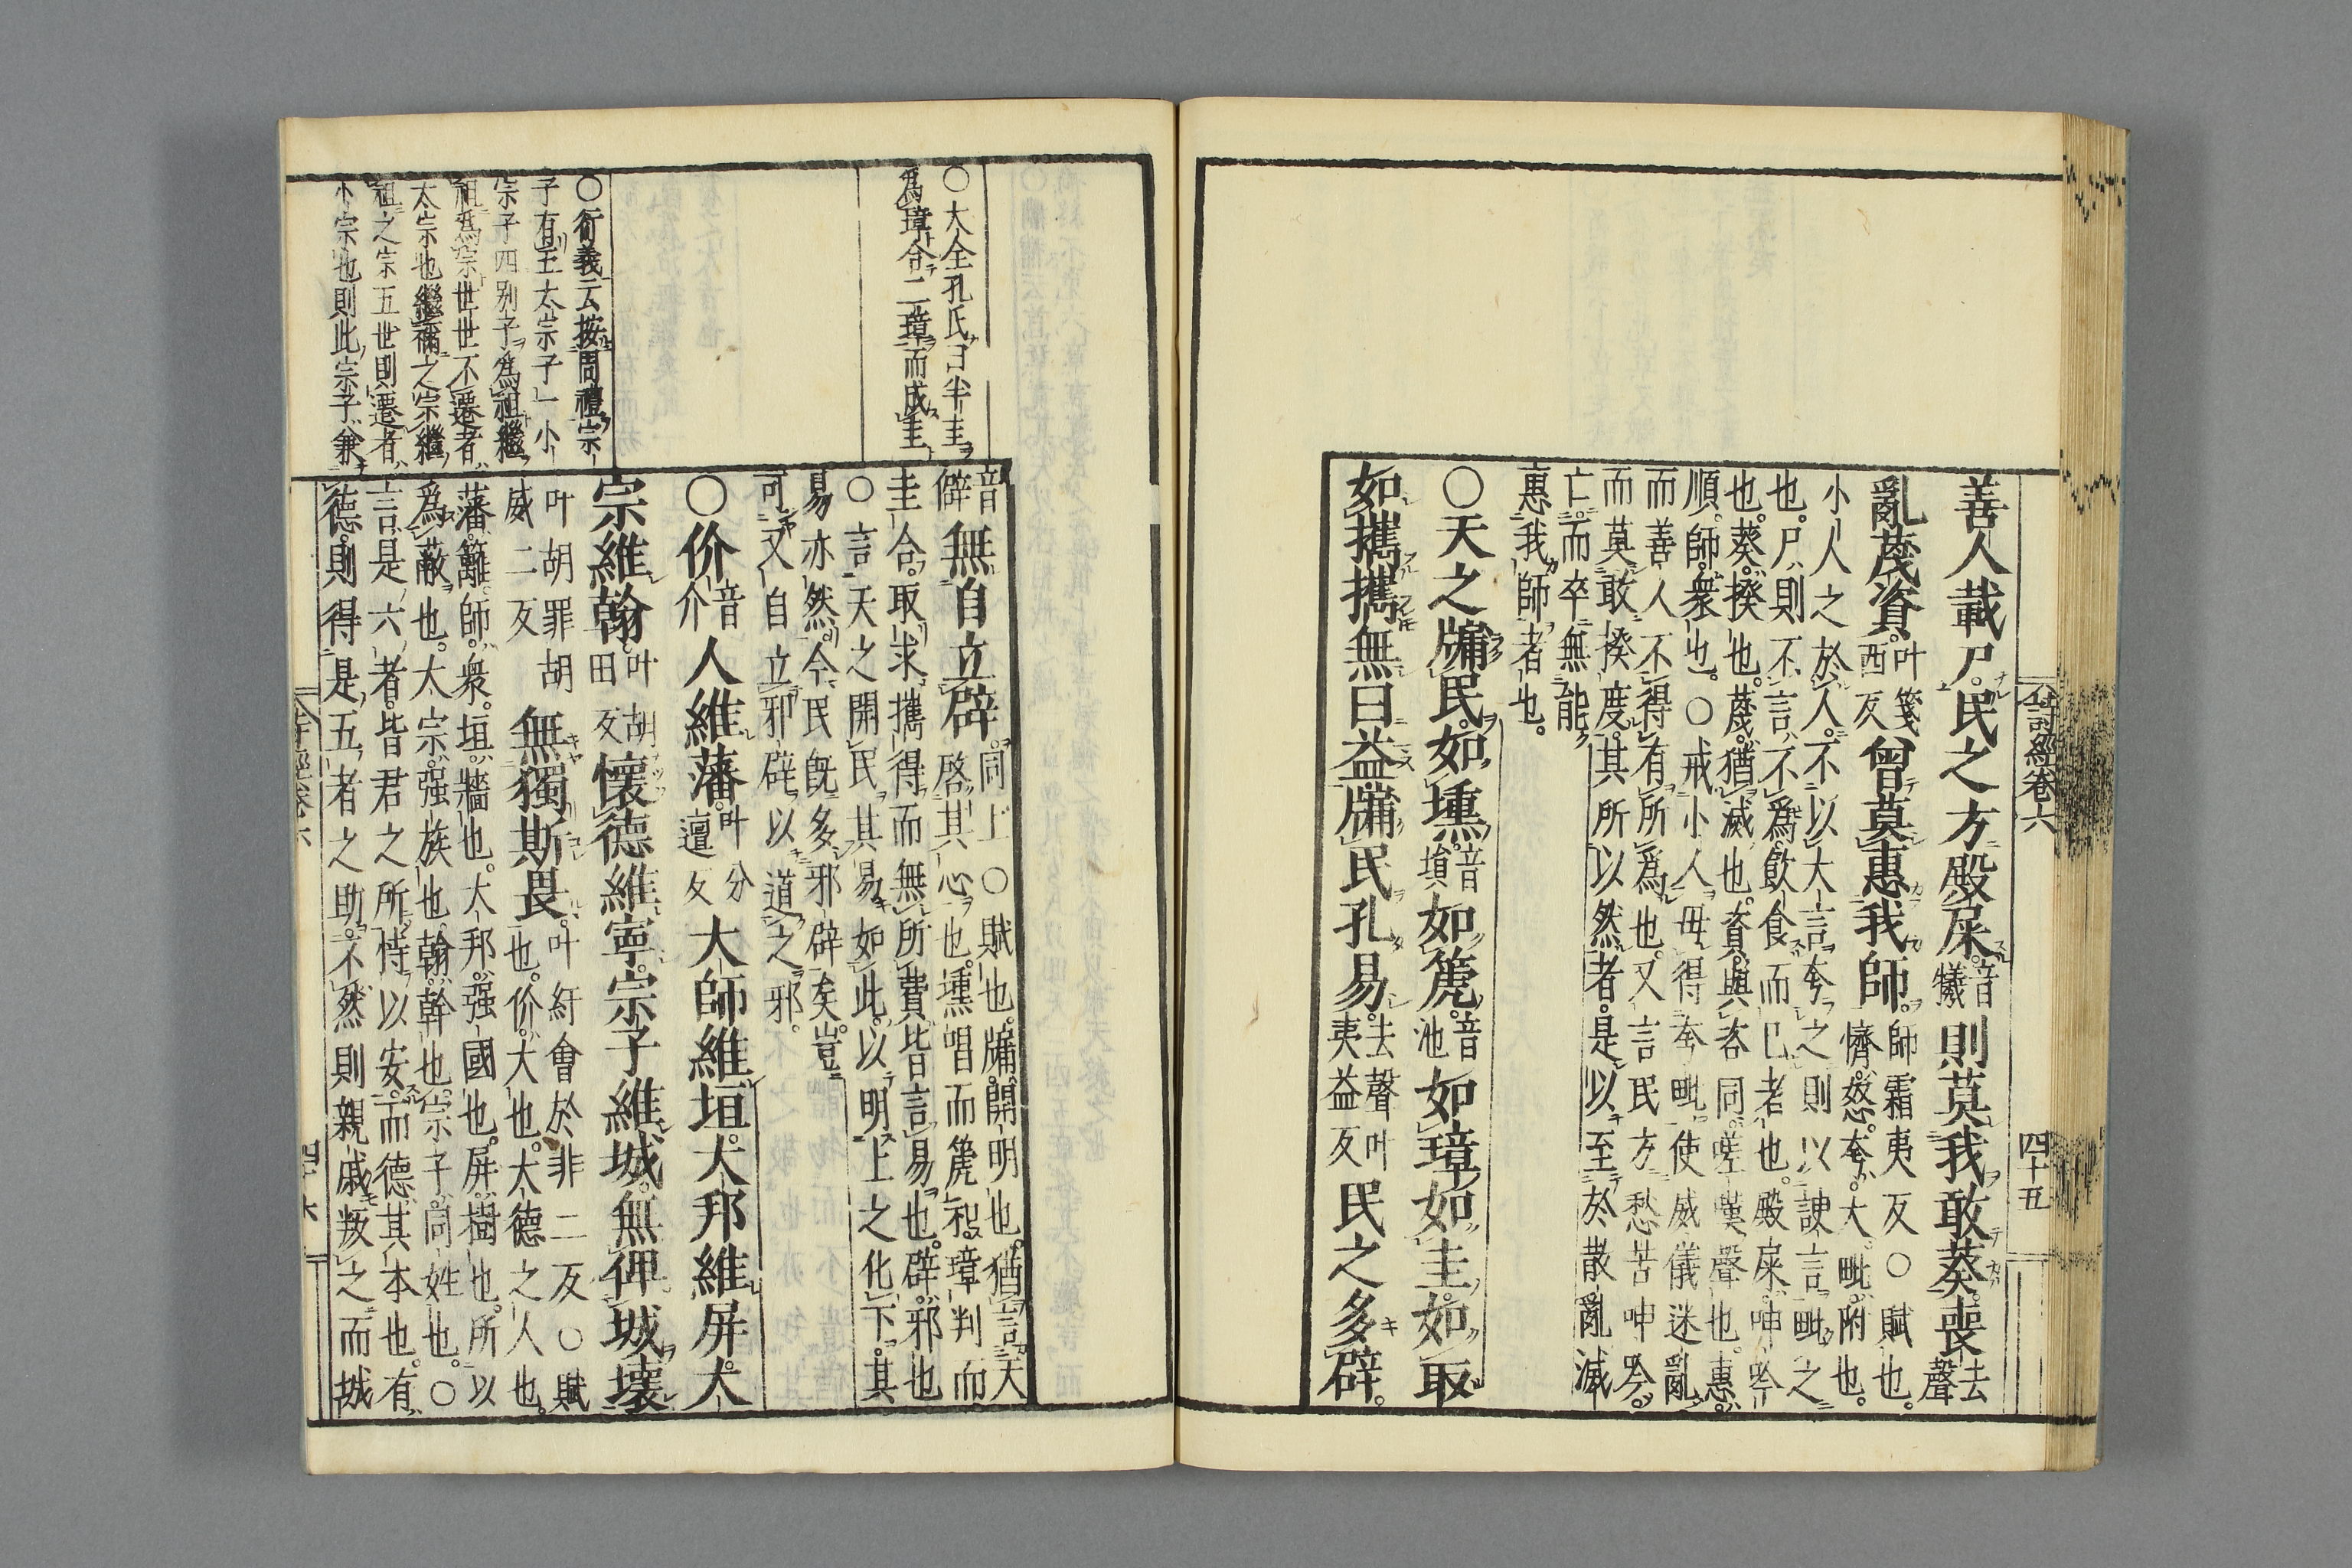 詩經卷六
四十五
善人載尸。民之方殿屎。音犧則莫我敢葵。喪去聲
亂蔑資。叶箋西反曾莫惠我師。師霜夷反○賦也。懠。怒。夸。大。毗。附也。
小人之於人。不以大言夸之則以諛言毗之
也。尸。則不言不爲飮食而已者也。殿屎。呻吟
也。葵。揆也。蔑。猶滅也。資。與咨同。嗟嘆聲也。惠。
順。師。衆也。○戒小人毋得夸毗使威儀迷亂
而善人不得有所爲也。又言民方愁苦呻吟。
而莫敢揆度其所以然者。是以至於散亂滅
亡。而卒無能
惠我師者也。
○天之牖民。如壎。音塤如篪。音池如璋如圭。如取
如攜。攜無曰益。牖民孔易。去聲叶夷益反民之多辟。
○大全孔氏曰半圭
爲璋合二璋而成圭
音僻無自立辟。同上○賦也。牖。開明也。猶言天
啓其心也。壎唱而篪和。璋判而
圭合。取求攜得而無所費。皆言易也。辟。邪也
○言天之開民其易如此。以明上之化下。其
易亦然。今民旣多邪辟矣。豈
可又自立邪辟以道之邪。
○价音介人維藩。叶分邅反大師維垣。大邦維屏。大
宗維翰。叶胡田反懷德維寧。宗子維城。無俾城壞
叶胡罪胡威二反無獨斯畏。叶紆會於非二反○賦也。价。大也。大德之人也。
藩。籬。師。衆。垣。牆也。大邦。强國也。屏。樹也。所以
爲蔽也。大宗。强族也。翰。幹也。宗子。同姓也。○
言是六者。皆君之所恃以安。而德其本也。有
德。則得是五者之助。不然則親戚叛之而城
○衍義云按周禮宗
子有王太宗子一小
宗子四别子爲祖繼
祖爲宗世世不遷者
太宗也繼禰之宗繼
祖之宗五世則遷者
小宗也則此宗子兼